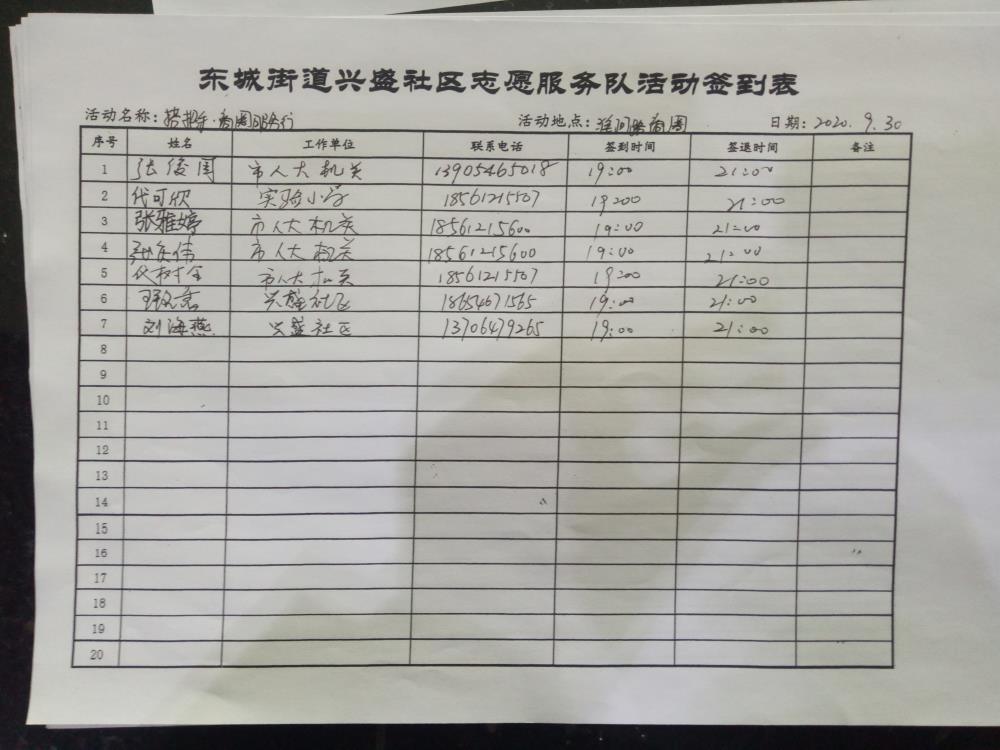 东城街道兴盛社区志愿服务队活动签到表
活动名称: 活动地点: 淮河路商圈 日期: 2020. 9. 30
序号 姓名 工作单位 联系电话 签到时间 签退时间 备注
1 张俊国 市人大机关 13905465018 19:00 21:00
2 代可欣 实验小学 18561215507 19:00 21:00
3 张雅婷 市人大机关 18561215600 19:00 21:00
4 市人大机关 18561215600 19:00 21:00
5 代树全 市人大机关 18561215507 19:00 21:00
6 兴盛社区 18654671565 19:00 21:00
7 刘海燕 兴盛社区 13706479265 19:00 21:00
8
9
10
11
12
13
14
15
16
17
18
19
20